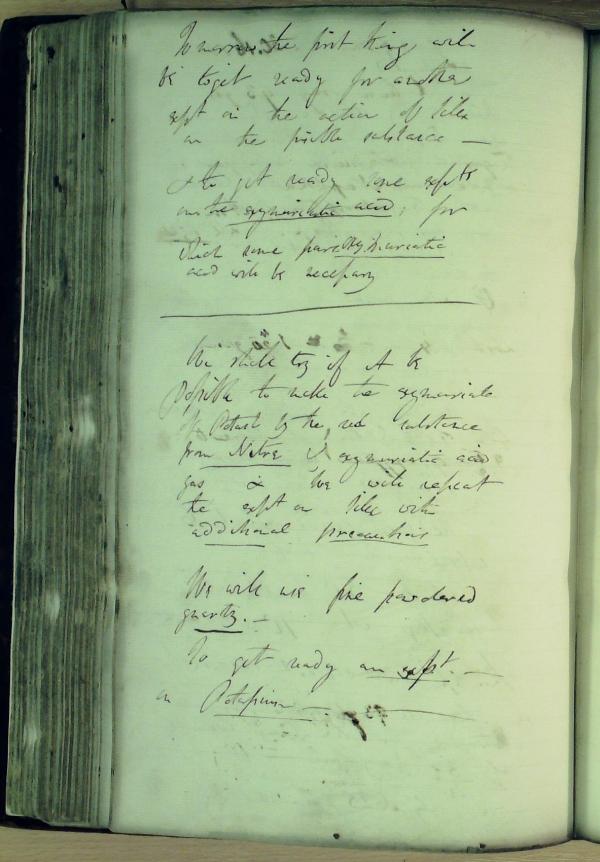 Tomorrow the first thing will
be to get ready for another
expt on the action of Silex
on the fusible substance —
& to get ready some expts
on the oxymuriatic acid, for
which some pure oxymuriatic
acid will be necessary
We shall try if it be
possible to make the oxymuriate
of Potash by the red substance
from Nitre & oxymuriatic acid
gas & We will repeat
the expt on Silex with
additional precautions
We will use fine powdered
quartz. —
To get ready an expt. —
on Potassium —